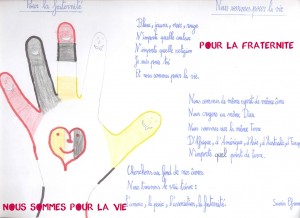 Pour la fraternité
Nous sommes pour la vie
Blanc, jaune, noir, rouge
N'importe quelle couleur
N'importe quelle religion
Je suis pour toi
Et nous sommes pour la vie.
POUR LA FRATERNITE
Nous sommes du même
Nous sommes sur la même Terre
D'Afrique, d'Amérique, d'Asie, d'Australie, d'Europe
N'importe quel point de terre.
Cherchons au fond de nos âmes
Nous trouverons le vrai trésor :
L'amour, la paix, l'association, la fraternité.
NOUS SOMMES POUR LA VIE